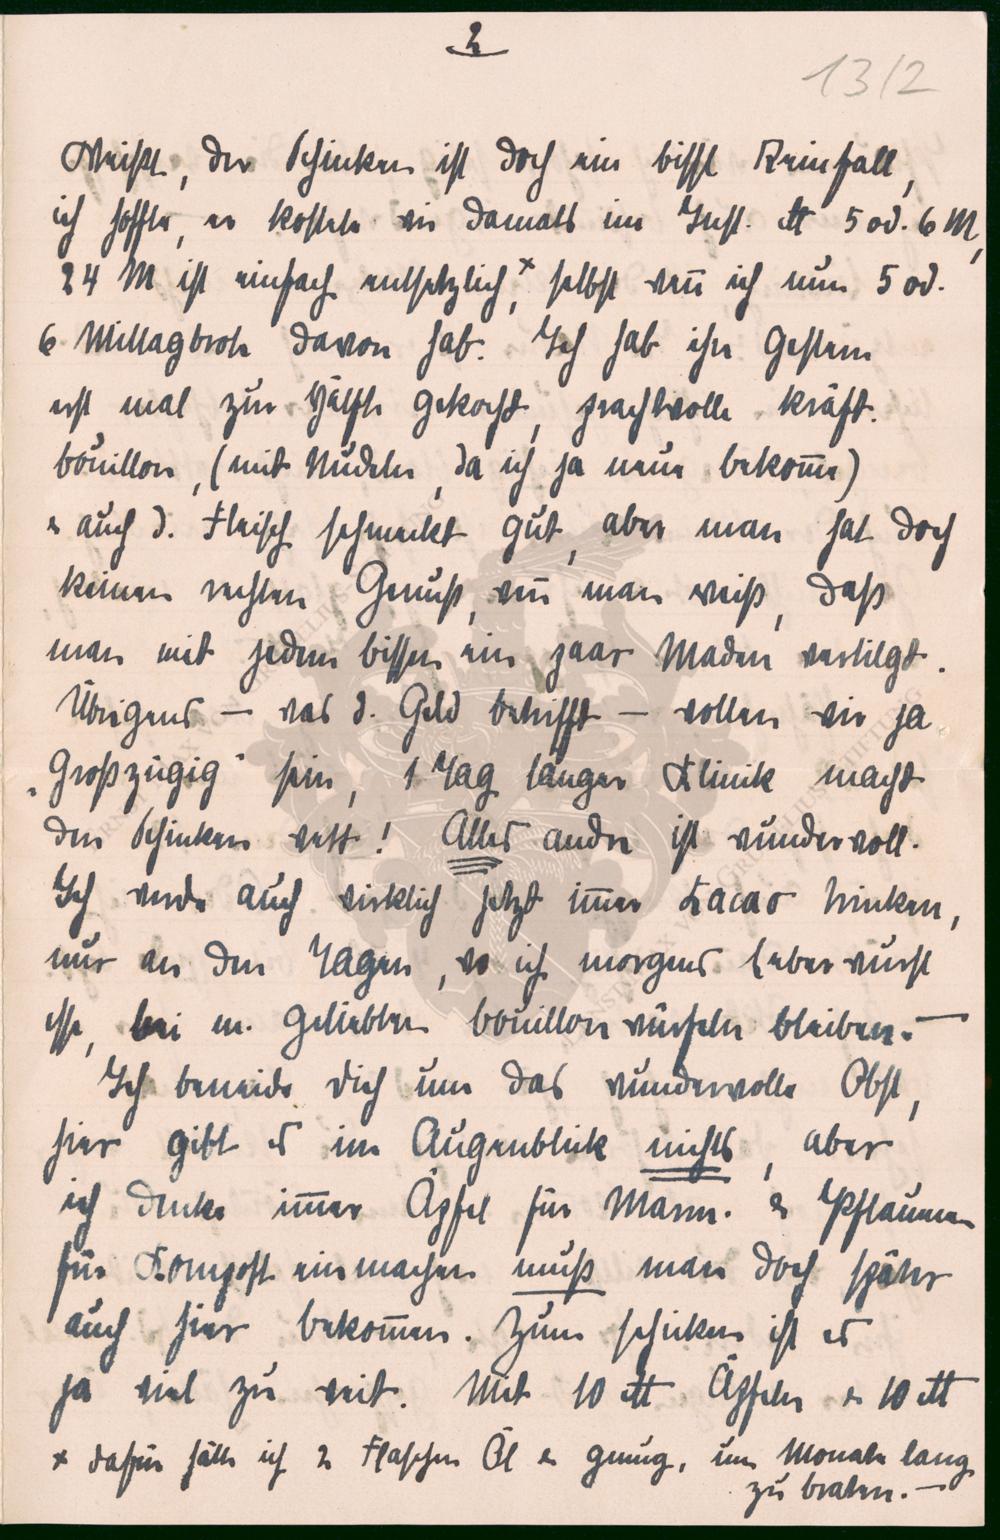 2
13/2
Weißt, der Schinken ist doch ein bissl Reinfall,
ich hoffte, er kostete wie damals im Inst. ℔ 5 od. 6 M,
24 M ist einfach entsetzlich,ˣ selbst weñ ich nun 5 od.
6 Mittagbrote davon hab. Ich hab ihn Gestern
erst mal zur Hälfte gekocht, prachtvolle kräft.
bouillon, (mit Nudeln, da ich ja neue bekom̅e)
& auch d. Fleisch schmeckt gut, aber man hat doch
keinen rechten Genuß, weñ man weiß, daß
man mit jedem bissen ein paar Maden vertilgt.
Übrigens – was d. Geld betrifft – wollen wir ja
„Großzügig" sein, 1 Tag länger Klinik macht
den Schinken wett! Alles andre ist wundervoll.
Ich werde auch wirklich jetzt im̅er Kacao trinken,
nur an den Tagen, wo ich morgens Leberwurst
esse, bei m. Geliebten bouillonwürfeln bleiben. –
Ich beneide Dich um das wundervolle Obst,
hier gibt es im Augenblick nichts, aber
ich denke im̅er Äpfel für Marm. & Pflaumen
für Kompott einmachen muß man doch später
auch hier bekom̅en. Zum schicken ist es
ja viel zu weit. Mit 10 ℔ Äpfeln & 10 ℔
x dafür hätte ich 2 Flaschen Öl & genug, um Monate lang
zu braten. –